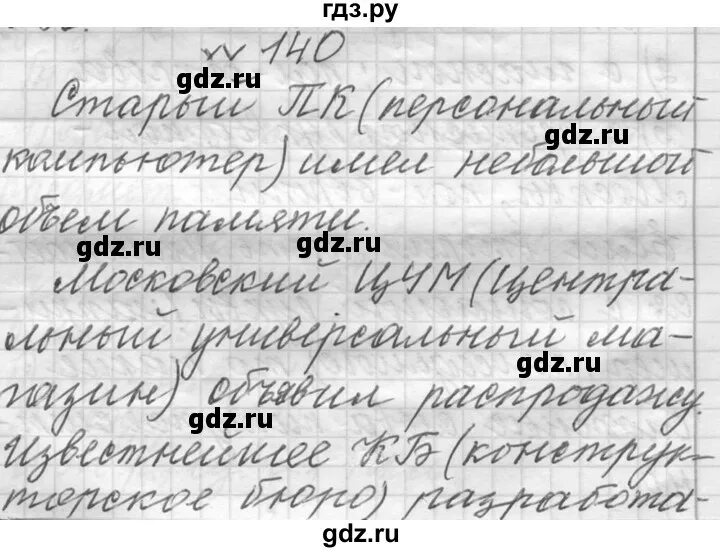 гдз.ру
№ 140
gdz.ru
Старый ПК (персональный
gdz.ru
компьютер) имел небольшой
объем памяти.
gdz.ru gdz.ru
Московский ЦУМ (Центра-
льный универсальный ма-
gdz.ru
газин) объявил распродажу.
gdz.ru
Известнейшее КБ (конструк-
торское бюро) разработа-
gdz.ru